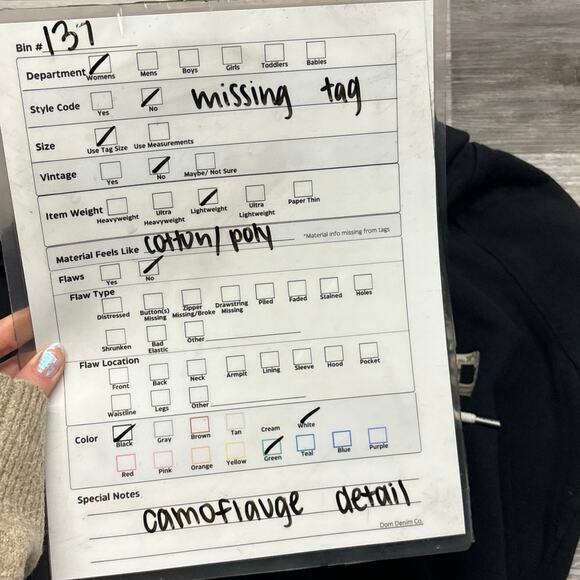 Bin # 137
Department Womens Mens Boys Girls Toddlers Babies
Style Code Yes No missing tag
Size Use Tag Size Use Measurements
Vintage Yes No Maybe/ Not Sure
Item Weight Heavyweight Ultra Heavyweight Lightweight Ultra Lightweight Paper Thin
Material Feels Like cotton/poly *Material info missing from tags
Flaws Yes No
Flaw Type
Distressed Button(s) Missing Zipper Missing/Broke Drawstring Missing Piled Faded Stained Holes
Shrunken Bad Elastic Other
Flaw Location
Front Back Neck Armpit Lining Sleeve Hood Pocket
Waistline Legs Other
Color Black Gray Brown Tan Cream White
Red Pink Orange Yellow Green Teal Blue Purple
Special Notes
camoflauge detail
Dom Denim Co.